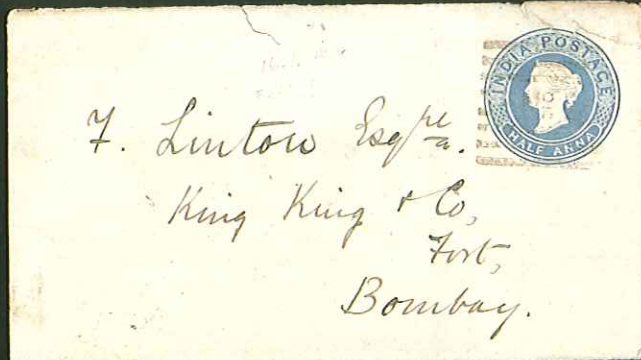 INDIA POSTAGE
HALF ANNA
F. Linton Esqre.
King King & Co,
Fort,
Bombay.